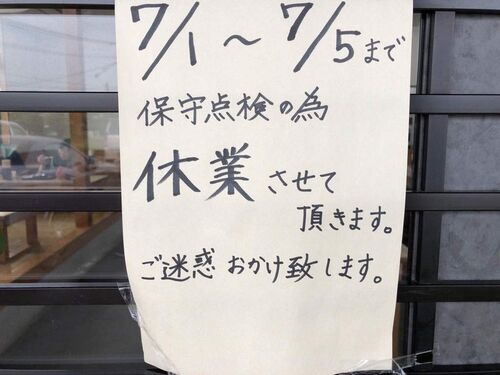 7/1～7/5まで
保守点検の為
休業させて
頂きます。
ご迷惑おかけ致します。